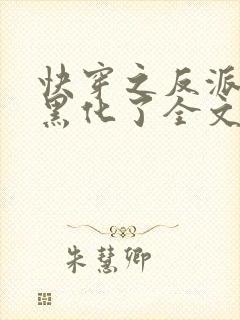 快穿之反派
黑化了全文
朱慧卿